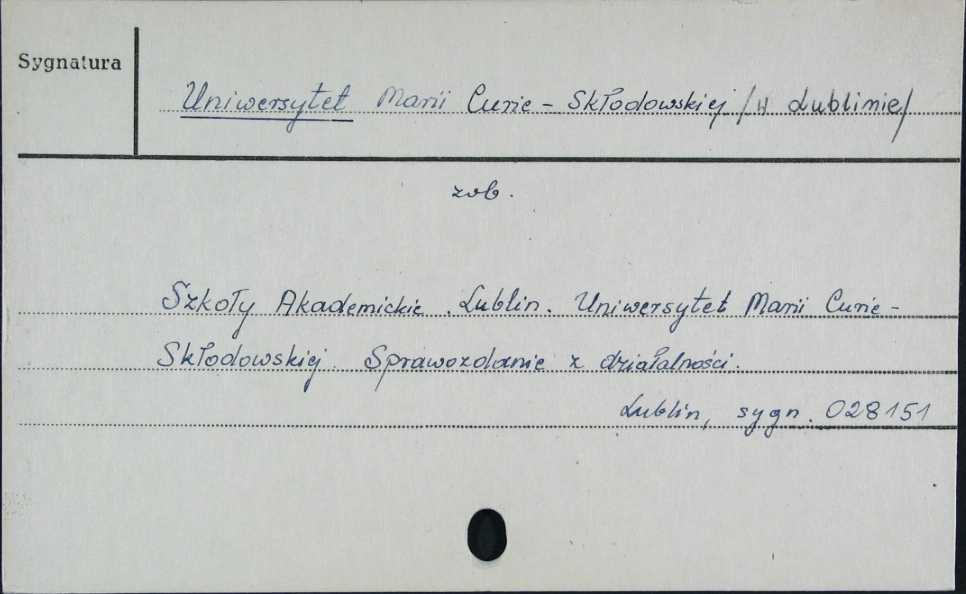 Sygnatura
Uniwersytet Marii Curie-Skłodowskiej /w Lublinie/
zob.
Szkoły Akademickie. Lublin. Uniwersytet Marii Curie-
Skłodowskiej. Sprawozdanie z działalności.
Lublin, sygn. 028151